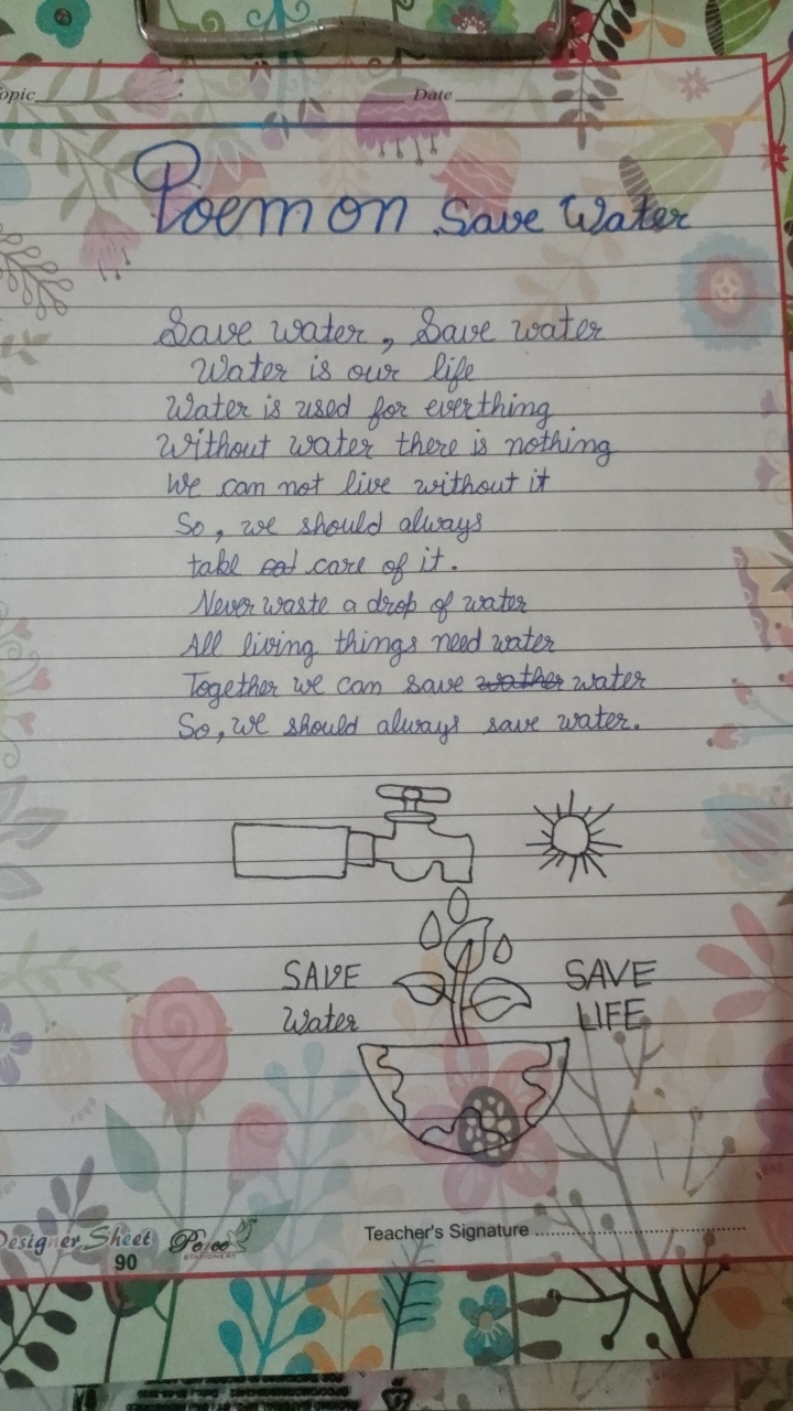 opic Date
Poem on Save Water
Save water, Save water
Water is our life
Water is used for everthing
Without water there is nothing
We can not live without it
So, we should always
take care of it.
Never waste a drop of water
All living things need water
Together we can save wather water
So, we should always save water.
SAVE
Water
SAVE
LIFE
Teacher's Signature
Designer Sheet
STATIONERY
90